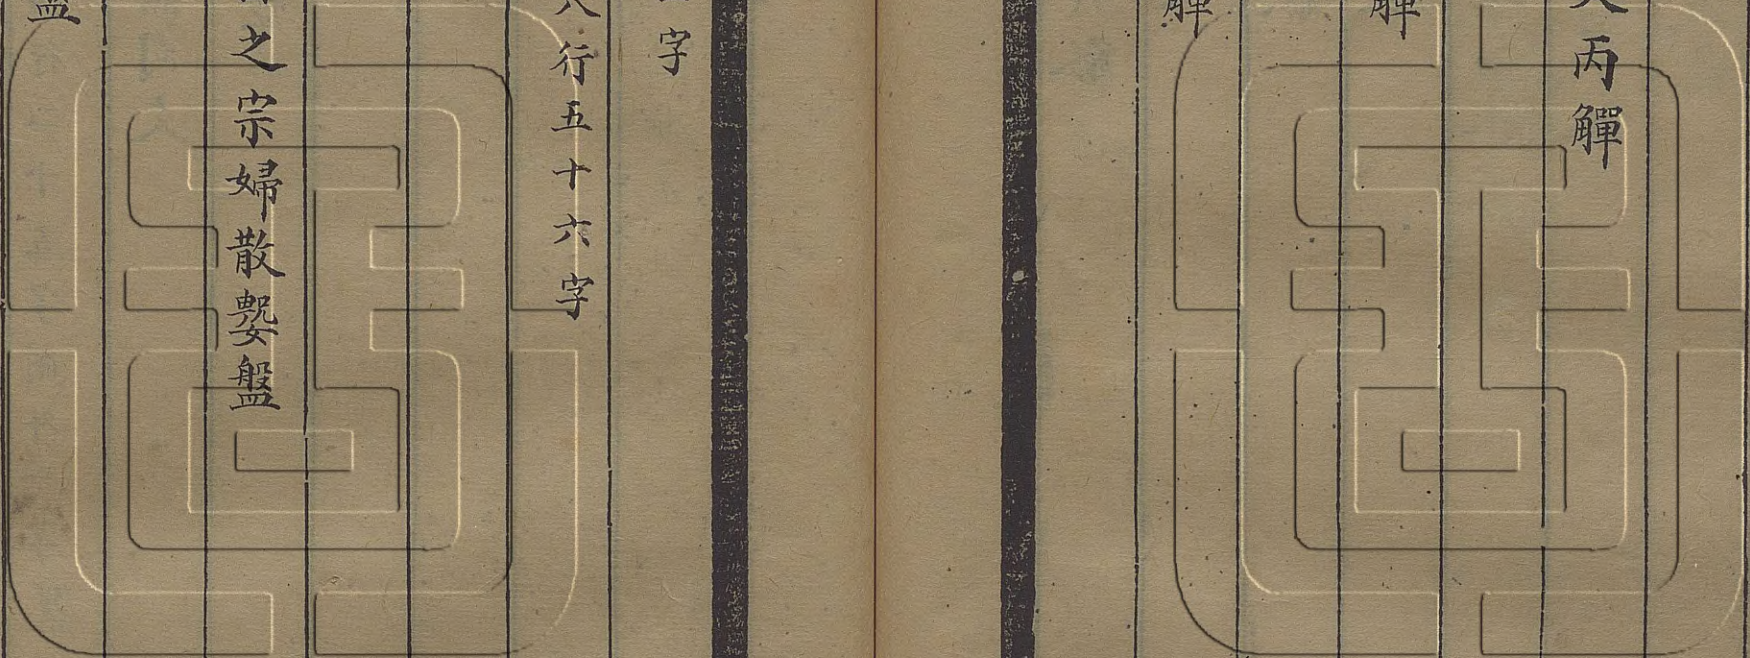 丙觶
觶
觶
字
八行五十六字
之宗婦散嫛盤